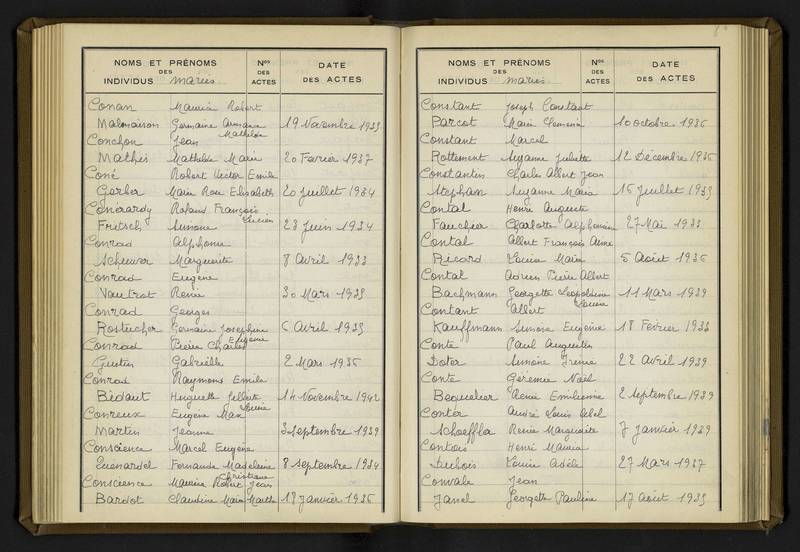 NOMS ET PRÉNOMS DES INDIVIDUS mariés
Nos DES ACTES
DATE DES ACTES
Conan Maurice Robert
Malmaison Germaine Armance Mathilde 19 Novembre 1935
Conchon Jean
Mathis Mathilde Marie 20 Février 1937
Coné Robert Victor Emile
Gerber Marie Rose Elisabeth 20 Juillet 1934
Conérardy Roland François Lucien
Fritsch Simone 23 Juin 1934
Conrad Alphonse
Scheuver Marguerite 8 Avril 1933
Conrad Eugène
Vautrot Renée 30 Mars 1935
Conrad Georges
Rostucher Germaine Josephine Eugénie 6 Avril 1935
Conrad Pierre Charles
Gustin Gabrielle 2 Mars 1936
Conrad Raymond Emile
Bidaut Huguette Louise 14 Novembre 1942
Conreux Eugène Max
Martin Jeanne 3 Septembre 1939
Conscience Marcel Eugène
Quenardel Fernande Madeleine Christiane 8 Septembre 1934
Conscience Maurice Robert Jean
Bardot Claudine Marie Marthe 18 Janvier 1936
NOMS ET PRÉNOMS DES INDIVIDUS mariés
Nos DES ACTES
DATE DES ACTES
Constant Joseph Constant
Parcot Marie Clemence 10 Octobre 1936
Constant Marcel
Rottement Suzanne Juliette 12 Décembre 1936
Constantin Charles Albert Jean
Stephan Suzanne Maria 15 Juillet 1933
Contal Henri Auguste
Faucher Charlotte Alphonsine 27 Mai 1933
Contal Albert François Aimé
Ricard Lucie Marie 5 Août 1936
Contal Adrien Pierre Albert
Bachmann Georgette Léopoldine Louise 11 Mars 1939
Contant Albert
Kauffmann Simone Eugénie 18 Février 1933
Conte Paul Augustin
Doter Simone Irénée 22 Avril 1939
Conte Gérémie Noël
Bequelier Renée Emilienne 2 Septembre 1939
Conter André Louis Abel
Schoeffler Renée Marguerite 7 Janvier 1939
Contois Henri Maurice
Dubois Louise Adèle 27 Mars 1937
Convale Jean
Janel Georgette Pauline 17 Août 1935